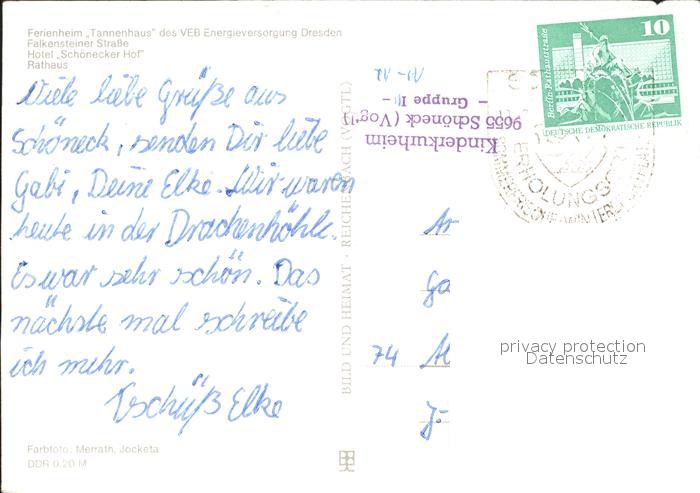 Ferienheim „Tannenhaus" des VEB Energieversorgung Dresden
Falkensteiner Straße
Hotel „Schönecker Hof"
Rathaus
Viele liebe Grüße aus
Schöneck, senden Dir liebe
Gabi, Deine Elke. Wir waren
heute in der Drachenhöhle.
Es war sehr schön. Das
nächste mal schreibe
ich mehr.
Tschüß Elke
Farbfoto: Merrath, Jocketa
DDR 0,20 M
BILD UND HEIMAT · REICHENBACH (VOGTL)
Kinderkurheim
9655 Schöneck (Vogtl)
– Gruppe II –
10
Berlin-Rathausstraße
DEUTSCHE DEMOKRATISCHE REPUBLIK
ERHOLUNGSORT
Ga
74
privacy protection
Datenschutz